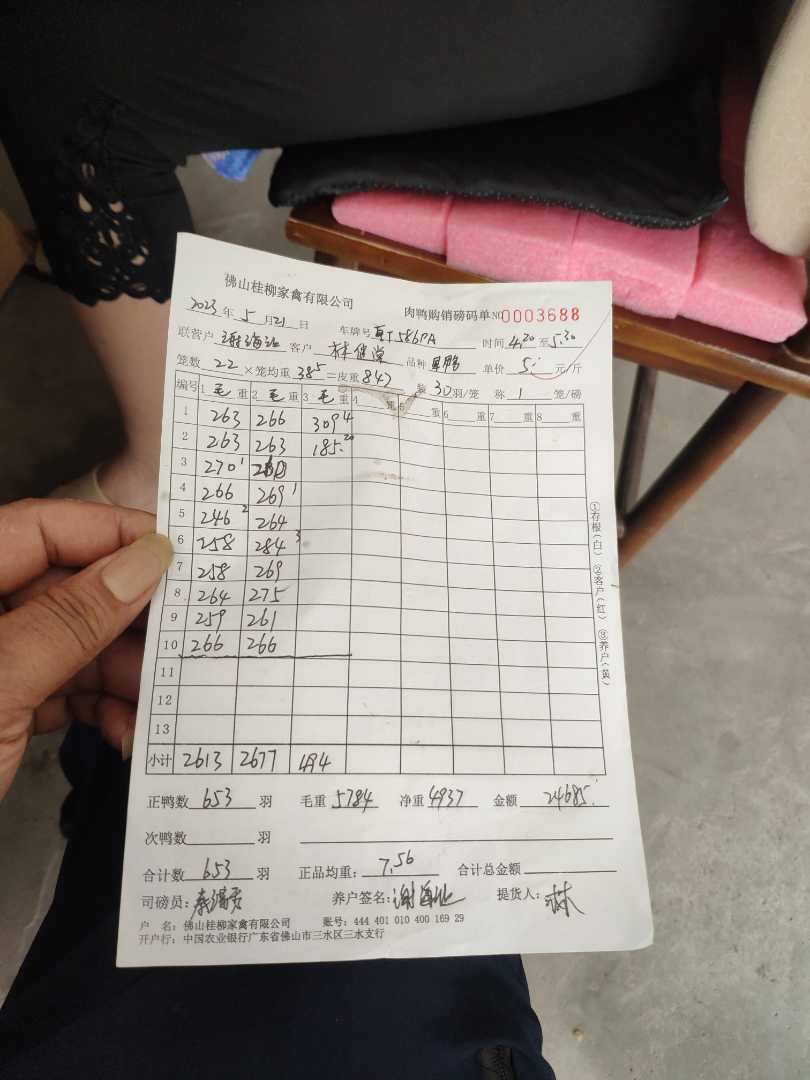 佛山桂柳家禽有限公司
肉鸭购销磅码单 NO 0003688
2023年 5月21日 车牌号 586PA 时间 4:20 至 5:30
联营户 客户 林 品种 单价 5: 元/斤
笼数 22 ×笼均重 38.5 =皮重 847 装 30 羽/笼 称 1 笼/磅
编号 1 毛重 2 毛重 3 毛重 4 重 5 重 6 重 7 重 8 重
1 263 266 309 4
2 263 263 185. 20
3 270 1
4 266 269 1
5 246 2 264
6 258 284 3
7 258 269
8 264 275
9 259 261
10 266 266
11
12
13
小计 2613 2677 494
正鸭数 653 羽 毛重 5784 净重 4937 金额 24685.
次鸭数 羽
合计数 653 羽 正品均重: 7.56 合计总金额
司磅员: 养户签名: 谢 提货人: 林
户 名: 佛山桂柳家禽有限公司 账号: 444 401 010 400 169 29
开户行: 中国农业银行广东省佛山市三水区三水支行
①存根(白) ②客户(红) ③养户(黄)